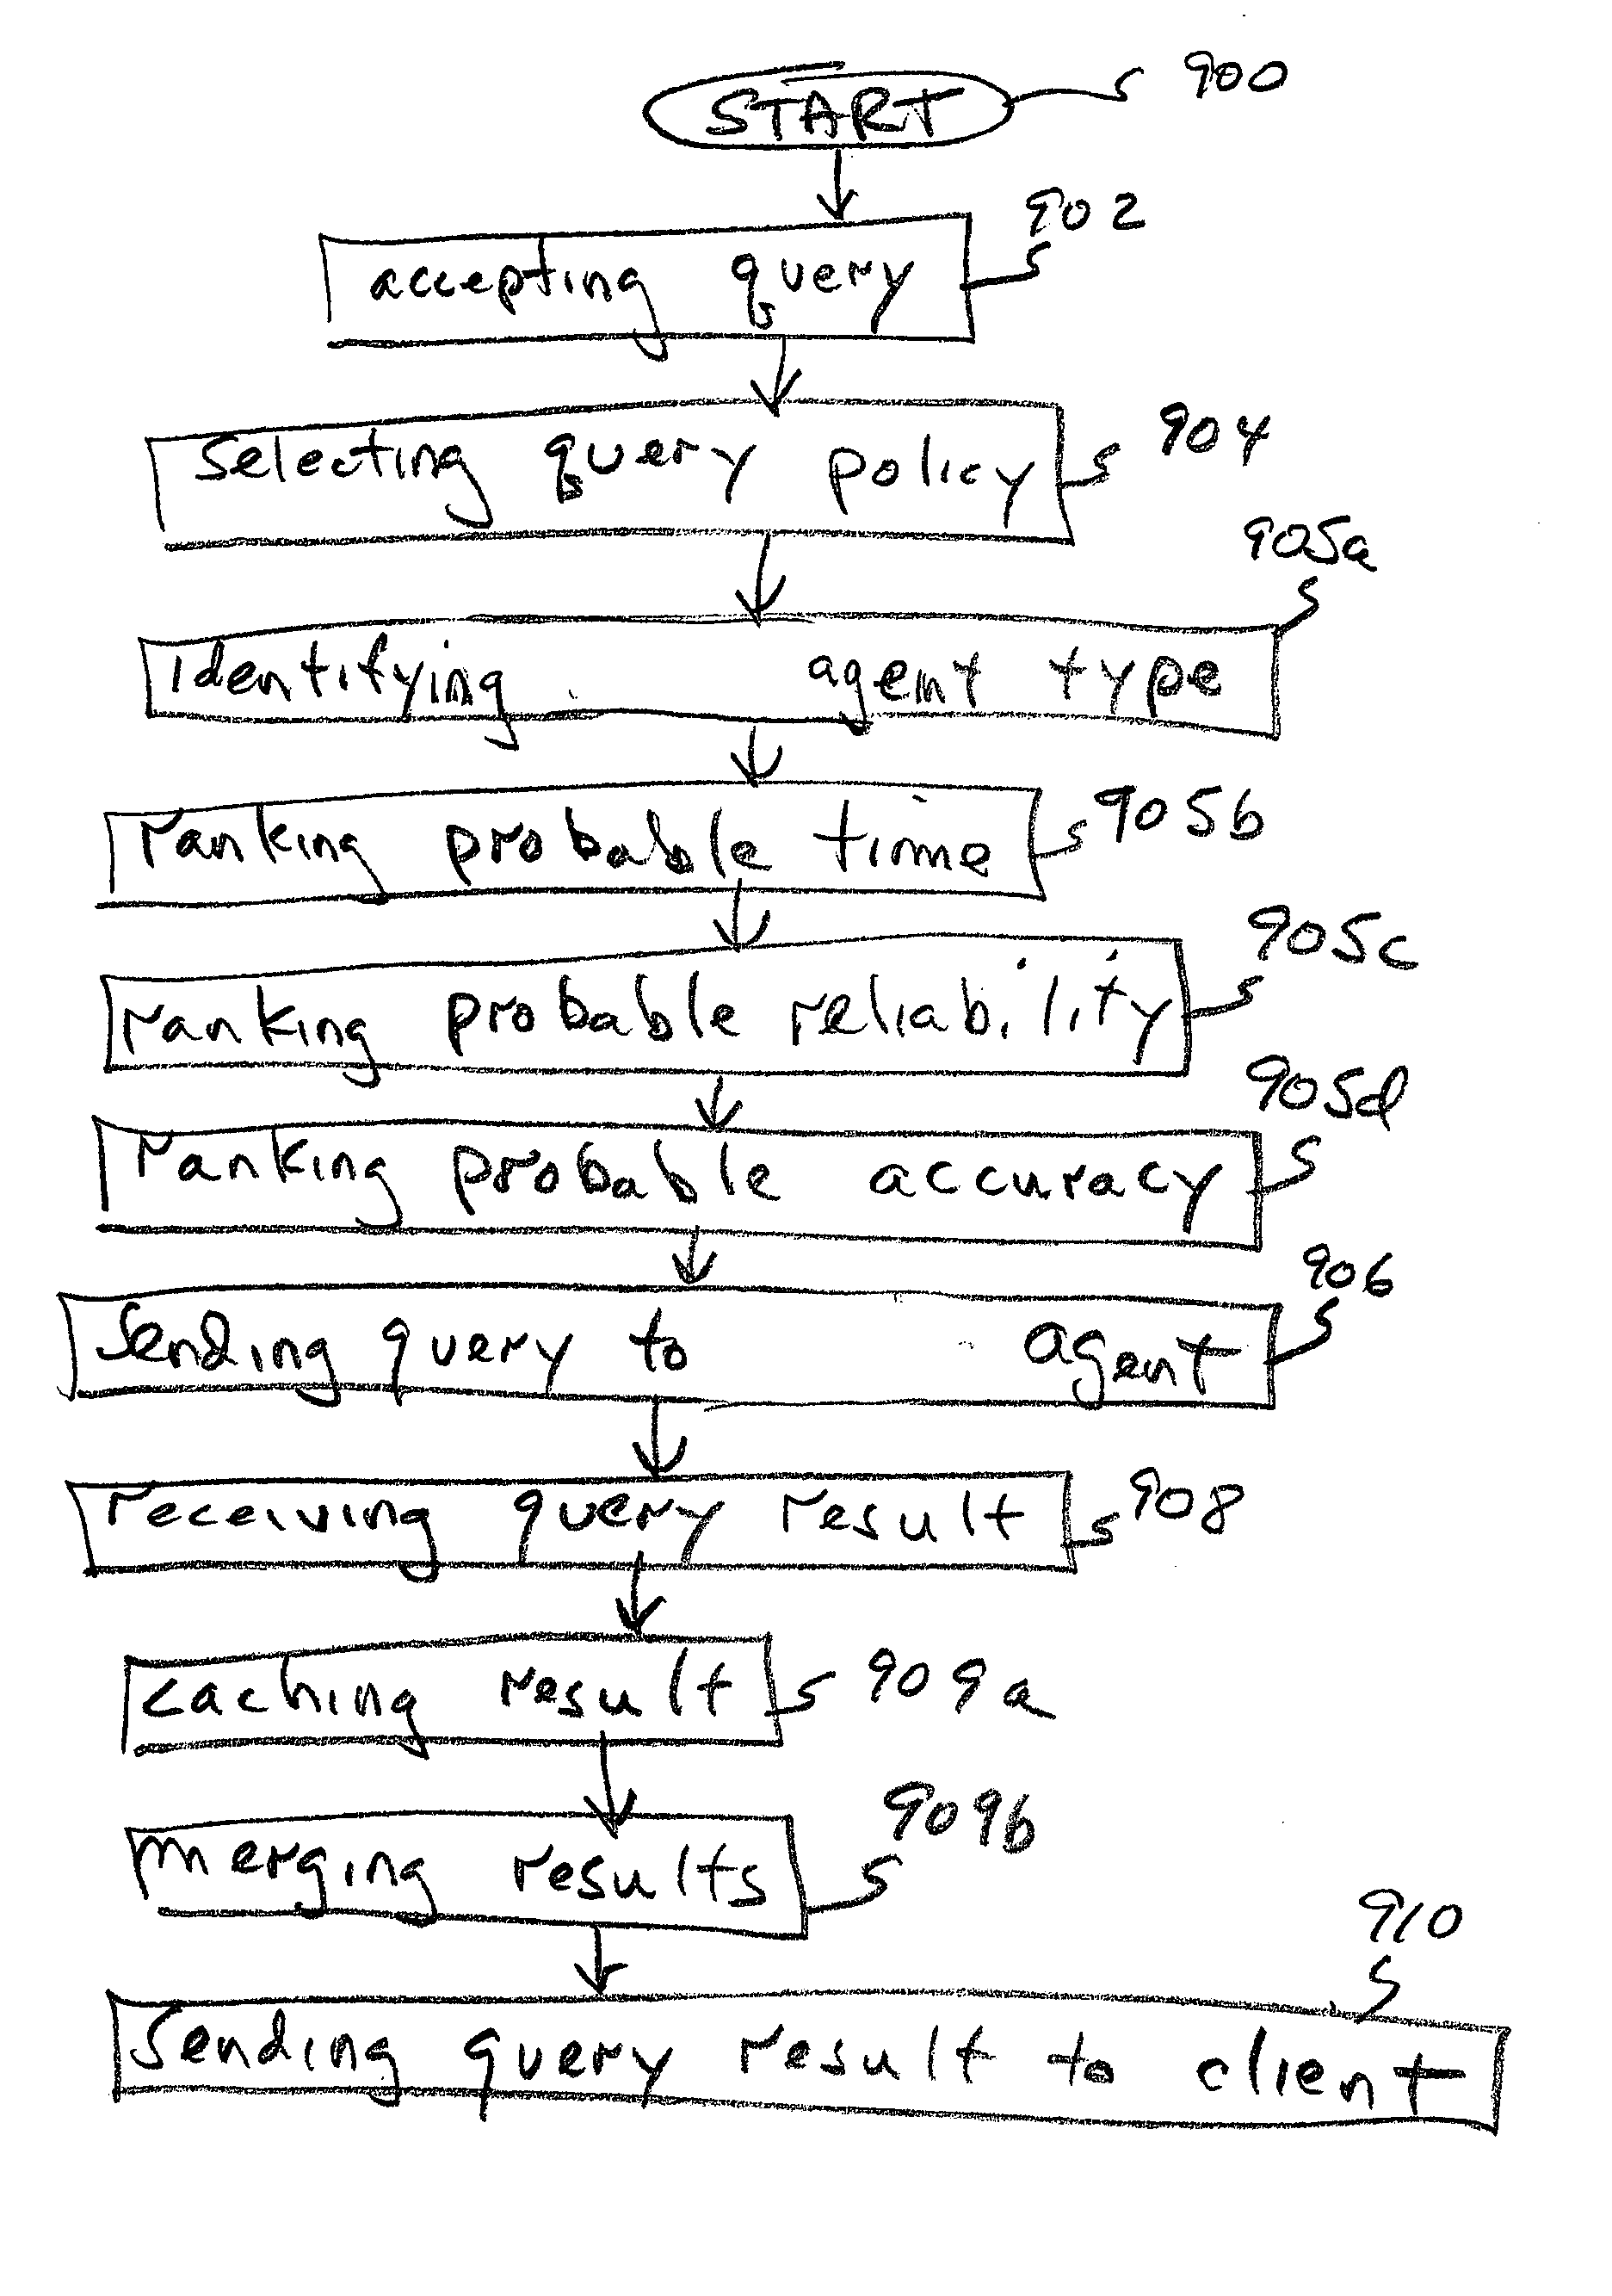 START 900
902
accepting query
904
selecting query policy
905a
Identifying agent type
ranking probable time 905b
905c
ranking probable reliability
905d
ranking probable accuracy
906
Sending query to agent
receiving query result 908
caching result 909a
909b
merging results
910
Sending query result to client